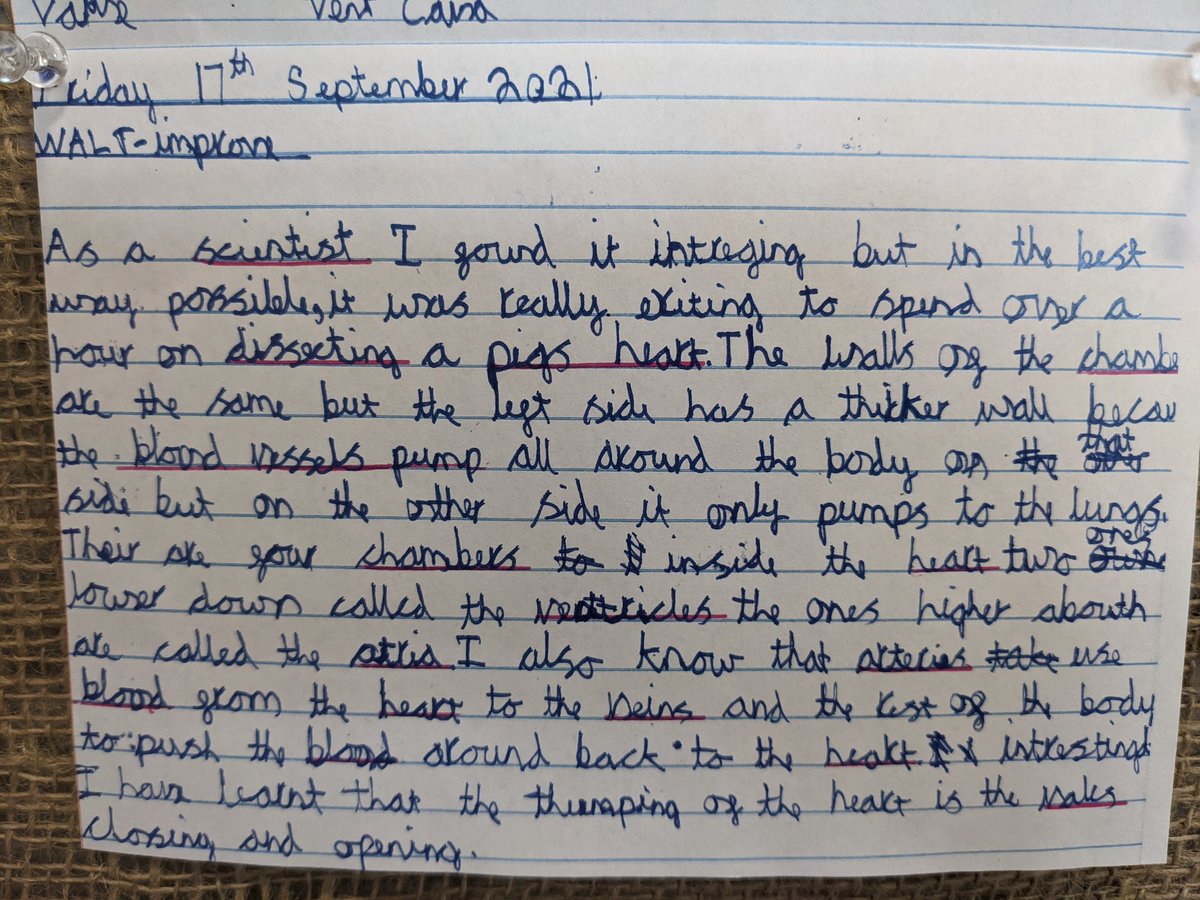 Valve Vena Cava
Friday 17th September 2021
WALT-improve
As a scientist I found it intreging but in the best
way possible, it was really exiting to spend over a
hour on dissecting a pigs heart. The walls of the chambe
are the same but the left side has a thicker wall becau
the blood vessels pump all around the body on that
side but on the other side it only pumps to the lungs.
Their are four chambers inside the heart two ones
lower down called the ventricles the ones higher abouth
are called the atria. I also know that arteries use
blood from the heart to the veins and the rest of the body
to push the blood around back to the heart. intrestingl
I have learnt that the thumping of the heart is the valves
closing and opening.